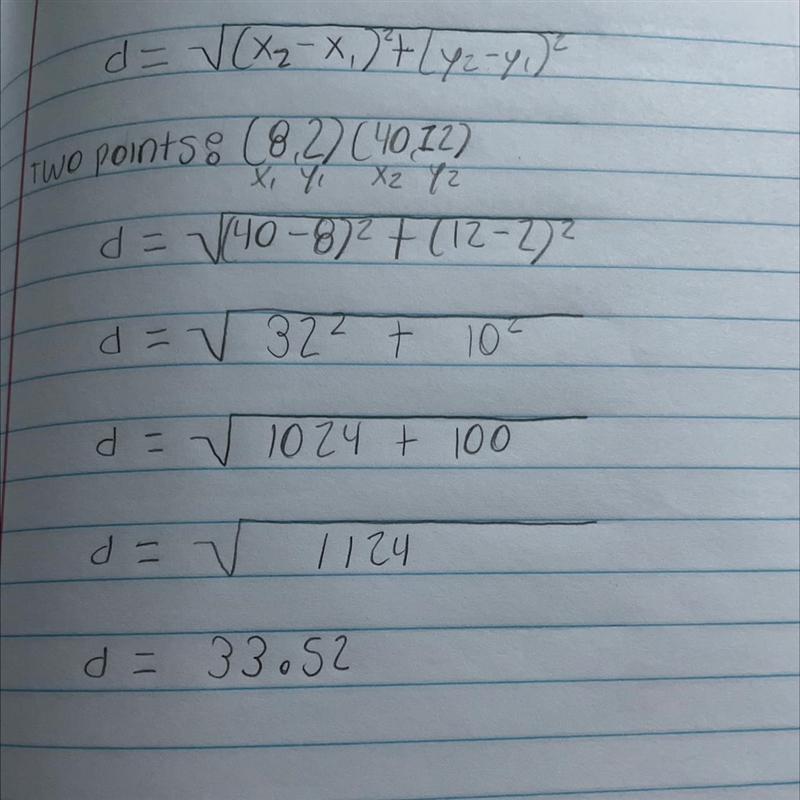 d = √(x₂ - x₁)² + (y₂ - y₁)²
Two points: (8, 2) (40, 12)
x₁ y₁ x₂ y₂
d = √(40 - 8)² + (12 - 2)²
d = √ 32² + 10²
d = √ 1024 + 100
d = √ 1124
d = 33.52